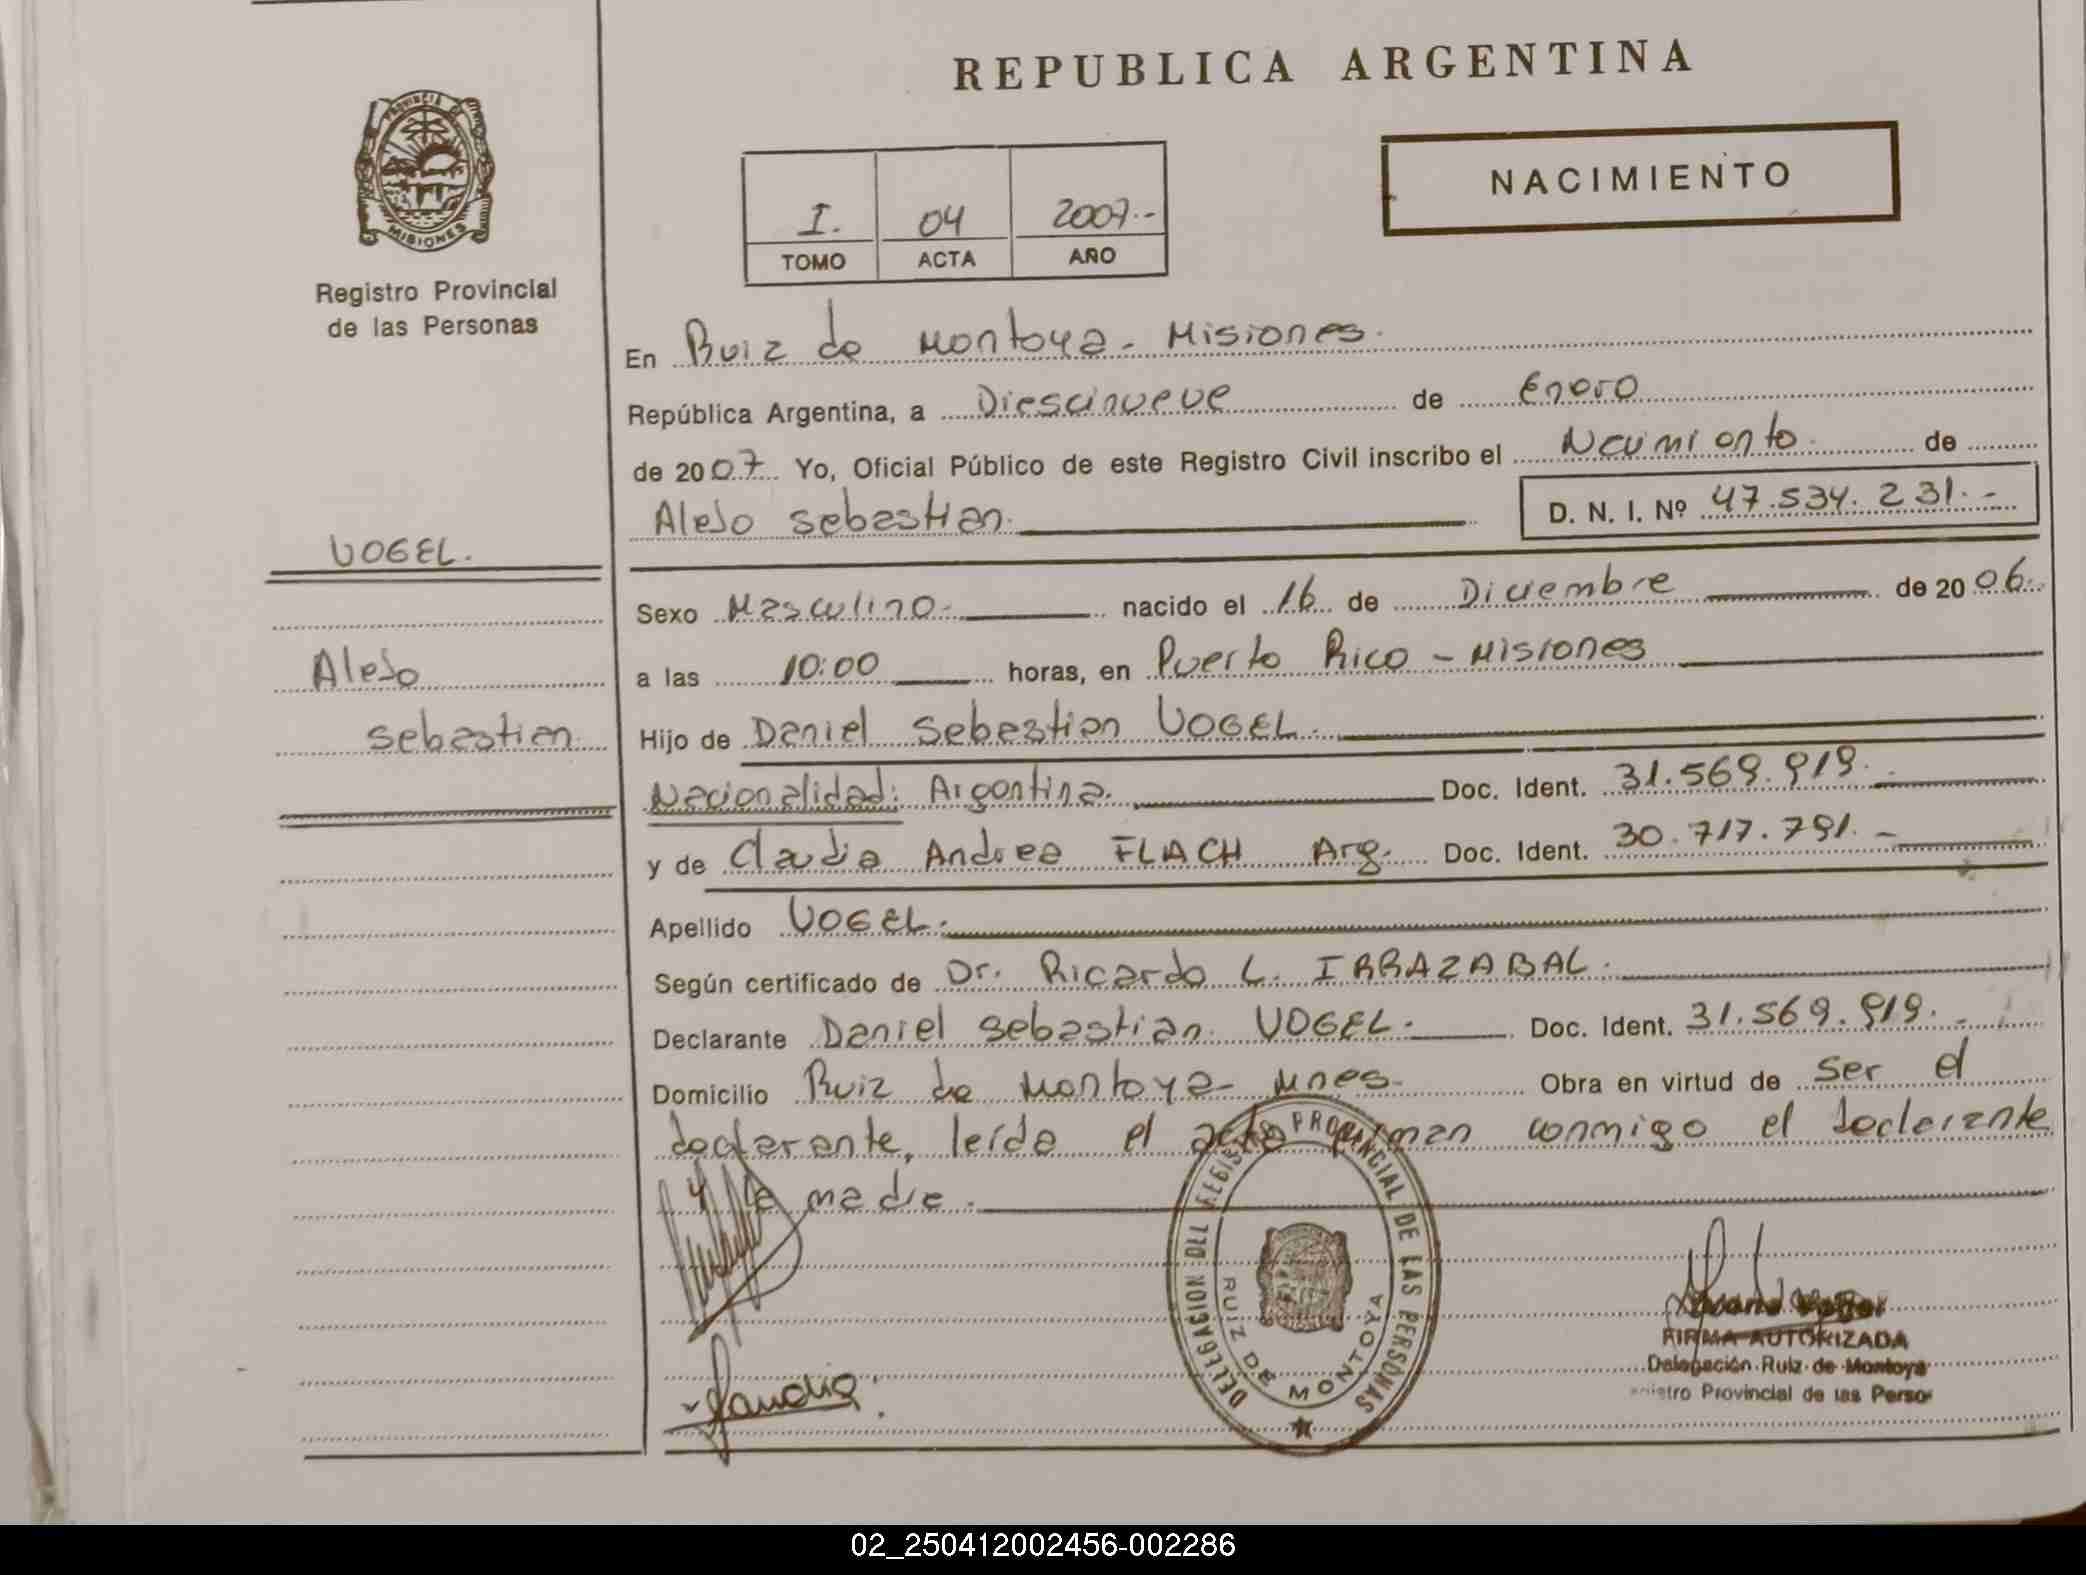 REPUBLICA ARGENTINA
PROVINCIA DE
MISIONES
Registro Provincial
de las Personas
NACIMIENTO
I. 04 2007.-
TOMO ACTA AÑO
En Ruiz de Montoya - Misiones.
República Argentina, a Diescinueve de Enero
de 2007 Yo, Oficial Público de este Registro Civil inscribo el Ncumiento de
Alejo Sebastian. D. N. I. Nº 47.534.231.-
VOGEL.
Sexo Masculino.- nacido el 16 de Diciembre de 2006.
Alejo
a las 10:00 horas, en Puerto Rico - Misiones
Sebastian
Hijo de Daniel Sebastian VOGEL.
Nacionalidad: Argentina. Doc. Ident. 31.569.919.
y de Claudia Andrea FLACH Arg. Doc. Ident. 30.717.791.-
Apellido VOGEL.
Según certificado de Dr. Ricardo L. IRRAZABAL.
Declarante Daniel Sebastian VOGEL. Doc. Ident. 31.569.919.-
Domicilio Ruiz de Montoya - Mnes. Obra en virtud de ser el
declarante, leída el acta firman conmigo el declarante
y la madre.
DELEGACION DEL REGISTRO PROVINCIAL DE LAS PERSONAS
RUIZ DE MONTOYA
FIRMA AUTORIZADA
Delegación Ruiz de Montoya
Provincial de las Perso
Claudia
02_250412002456-002286